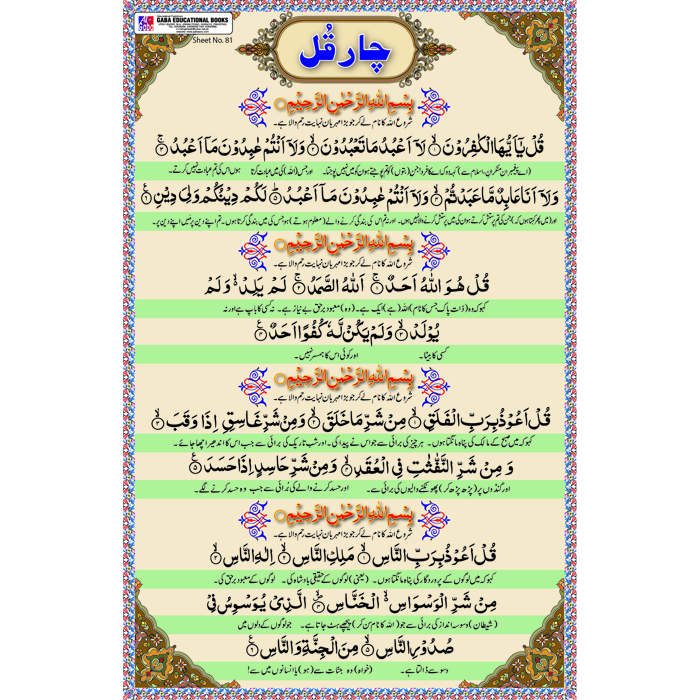 GABA EDUCATIONAL BOOKS
Sheet No. 81
چار قُل
بِسْمِ اللهِ الرَّحْمٰنِ الرَّحِيْمِ
شروع اللہ کا نام لے کر جو بڑا مہربان نہایت رحم والا ہے۔
قُلْ يٰٓاَيُّهَا الْكٰفِرُوْنَ ۙ۱ لَآ اَعْبُدُ مَا تَعْبُدُوْنَ ۙ۲ وَلَآ اَنْتُمْ عٰبِدُوْنَ مَآ اَعْبُدُ ۚ۳
(اے پیغمبر ان منکرانِ اسلام سے) کہہ دو کہ اے کافرو! جن (بتوں) کو تم پوجتے ہو ان کو میں نہیں پوجتا۔ اور جس (اللہ) کی میں عبادت کرتا ہوں اس کی تم عبادت نہیں کرتے۔
وَلَآ اَنَا عَابِدٌ مَّا عَبَدْتُّمْ ۙ۴ وَلَآ اَنْتُمْ عٰبِدُوْنَ مَآ اَعْبُدُ ؕ۵ لَكُمْ دِيْنُكُمْ وَلِيَ دِيْنِ ۶
اور (میں پھر کہتا ہوں کہ) جن کی تم پرستش کرتے ہو ان کی میں پرستش کرنے والا نہیں ہوں۔ اور نہ تم اس کی بندگی کرنے والے (معلوم ہوتے) ہو جس کی میں بندگی کرتا ہوں۔ تم اپنے دین پر میں اپنے دین پر۔
بِسْمِ اللهِ الرَّحْمٰنِ الرَّحِيْمِ
شروع اللہ کا نام لے کر جو بڑا مہربان نہایت رحم والا ہے۔
قُلْ هُوَ اللهُ اَحَدٌ ۚ۱ اَللهُ الصَّمَدُ ۚ۲ لَمْ يَلِدْ ۙ وَلَمْ
کہو کہ وہ (ذات پاک جس کا نام) اللہ (ہے) ایک ہے۔ (وہ) معبود برحق بے نیاز ہے۔ نہ کسی کا باپ ہے اور نہ
يُوْلَدْ ۙ۳ وَلَمْ يَكُنْ لَّهٗ كُفُوًا اَحَدٌ ۴
کسی کا بیٹا۔ اور کوئی اس کا ہمسر نہیں۔
بِسْمِ اللهِ الرَّحْمٰنِ الرَّحِيْمِ
شروع اللہ کا نام لے کر جو بڑا مہربان نہایت رحم والا ہے۔
قُلْ اَعُوْذُ بِرَبِّ الْفَلَقِ ۙ۱ مِنْ شَرِّ مَا خَلَقَ ۙ۲ وَمِنْ شَرِّ غَاسِقٍ اِذَا وَقَبَ ۙ۳
کہو کہ میں صبح کے مالک کی پناہ مانگتا ہوں۔ ہر چیز کی برائی سے جو اس نے پیدا کی۔ اور شب تاریک کی برائی سے جب اس کا اندھیرا چھا جائے۔
وَ مِنْ شَرِّ النَّفّٰثٰتِ فِي الْعُقَدِ ۙ۴ وَمِنْ شَرِّ حَاسِدٍ اِذَا حَسَدَ ۵
اور گنڈوں پر (پڑھ پڑھ کر) پھونکنے والیوں کی برائی سے۔ اور حسد کرنے والے کی بُرائی سے جب وہ حسد کرنے لگے۔
بِسْمِ اللهِ الرَّحْمٰنِ الرَّحِيْمِ
شروع اللہ کا نام لے کر جو بڑا مہربان نہایت رحم والا ہے۔
قُلْ اَعُوْذُ بِرَبِّ النَّاسِ ۙ۱ مَلِكِ النَّاسِ ۙ۲ اِلٰهِ النَّاسِ ۙ۳
کہو کہ میں لوگوں کے پروردگار کی پناہ مانگتا ہوں۔ (یعنی) لوگوں کے حقیقی بادشاہ کی۔ لوگوں کے معبود برحق کی۔
مِنْ شَرِّ الْوَسْوَاسِ ۙ الْخَنَّاسِ ۙ۴ الَّذِيْ يُوَسْوِسُ فِيْ
(شیطان) وسوسہ انداز کی برائی سے جو (اللہ کا نام سن کر) پیچھے ہٹ جاتا ہے۔ جو لوگوں کے دلوں میں
صُدُوْرِ النَّاسِ ۙ۵ مِنَ الْجِنَّةِ وَالنَّاسِ ۶
وسوسے ڈالتا ہے۔ (خواہ) وہ جنات سے (ہو) یا انسانوں میں سے!